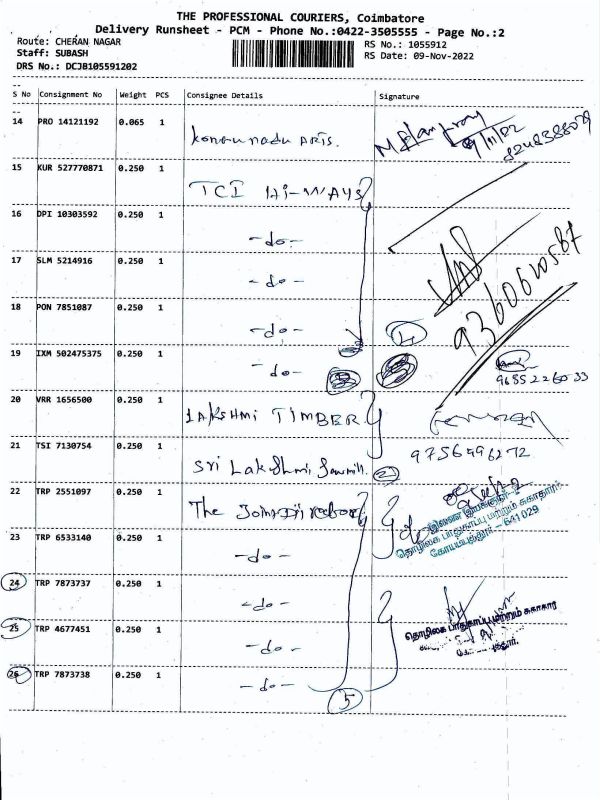 THE PROFESSIONAL COURIERS, Coimbatore
Delivery Runsheet - PCM - Phone No.:0422-3505555 - Page No.:2
Route: CHERAN NAGAR
RS No.: 1055912
Staff: SUBASH
RS Date: 09-Nov-2022
DRS No.: DCJB105591202
S No Consignment No Weight PCS Consignee Details Signature
14 PRO 14121192 0.065 1 Kongunadu ARTS. 9/11/22
8248388029
15 KUR 527770871 0.250 1 TCI HI-WAYS
16 DPI 10303592 0.250 1 -do-
17 SLM 5214916 0.250 1 -do- 9360610587
18 PON 7851087 0.250 1 -do- 4
19 IXM 502475375 0.250 1 -do- 9685226033
20 VRR 1656500 0.250 1 LAKSHMI TIMBER
21 TSI 7130754 0.250 1 Sri Lakshmi Sawmill. 2 9756996272
22 TRP 2551097 0.250 1 The Joint
தொழிலக பாதுகாப்பு மற்றும் சுகாதாரம்
கோயம்புத்தூர் - 641 029
23 TRP 6533140 0.250 1 -do-
24 TRP 7873737 0.250 1 -do-
25 TRP 4677451 0.250 1 -do- தொழிலக பாதுகாப்பு மற்றும் சுகாதார
26 TRP 7873738 0.250 1 -do-
5